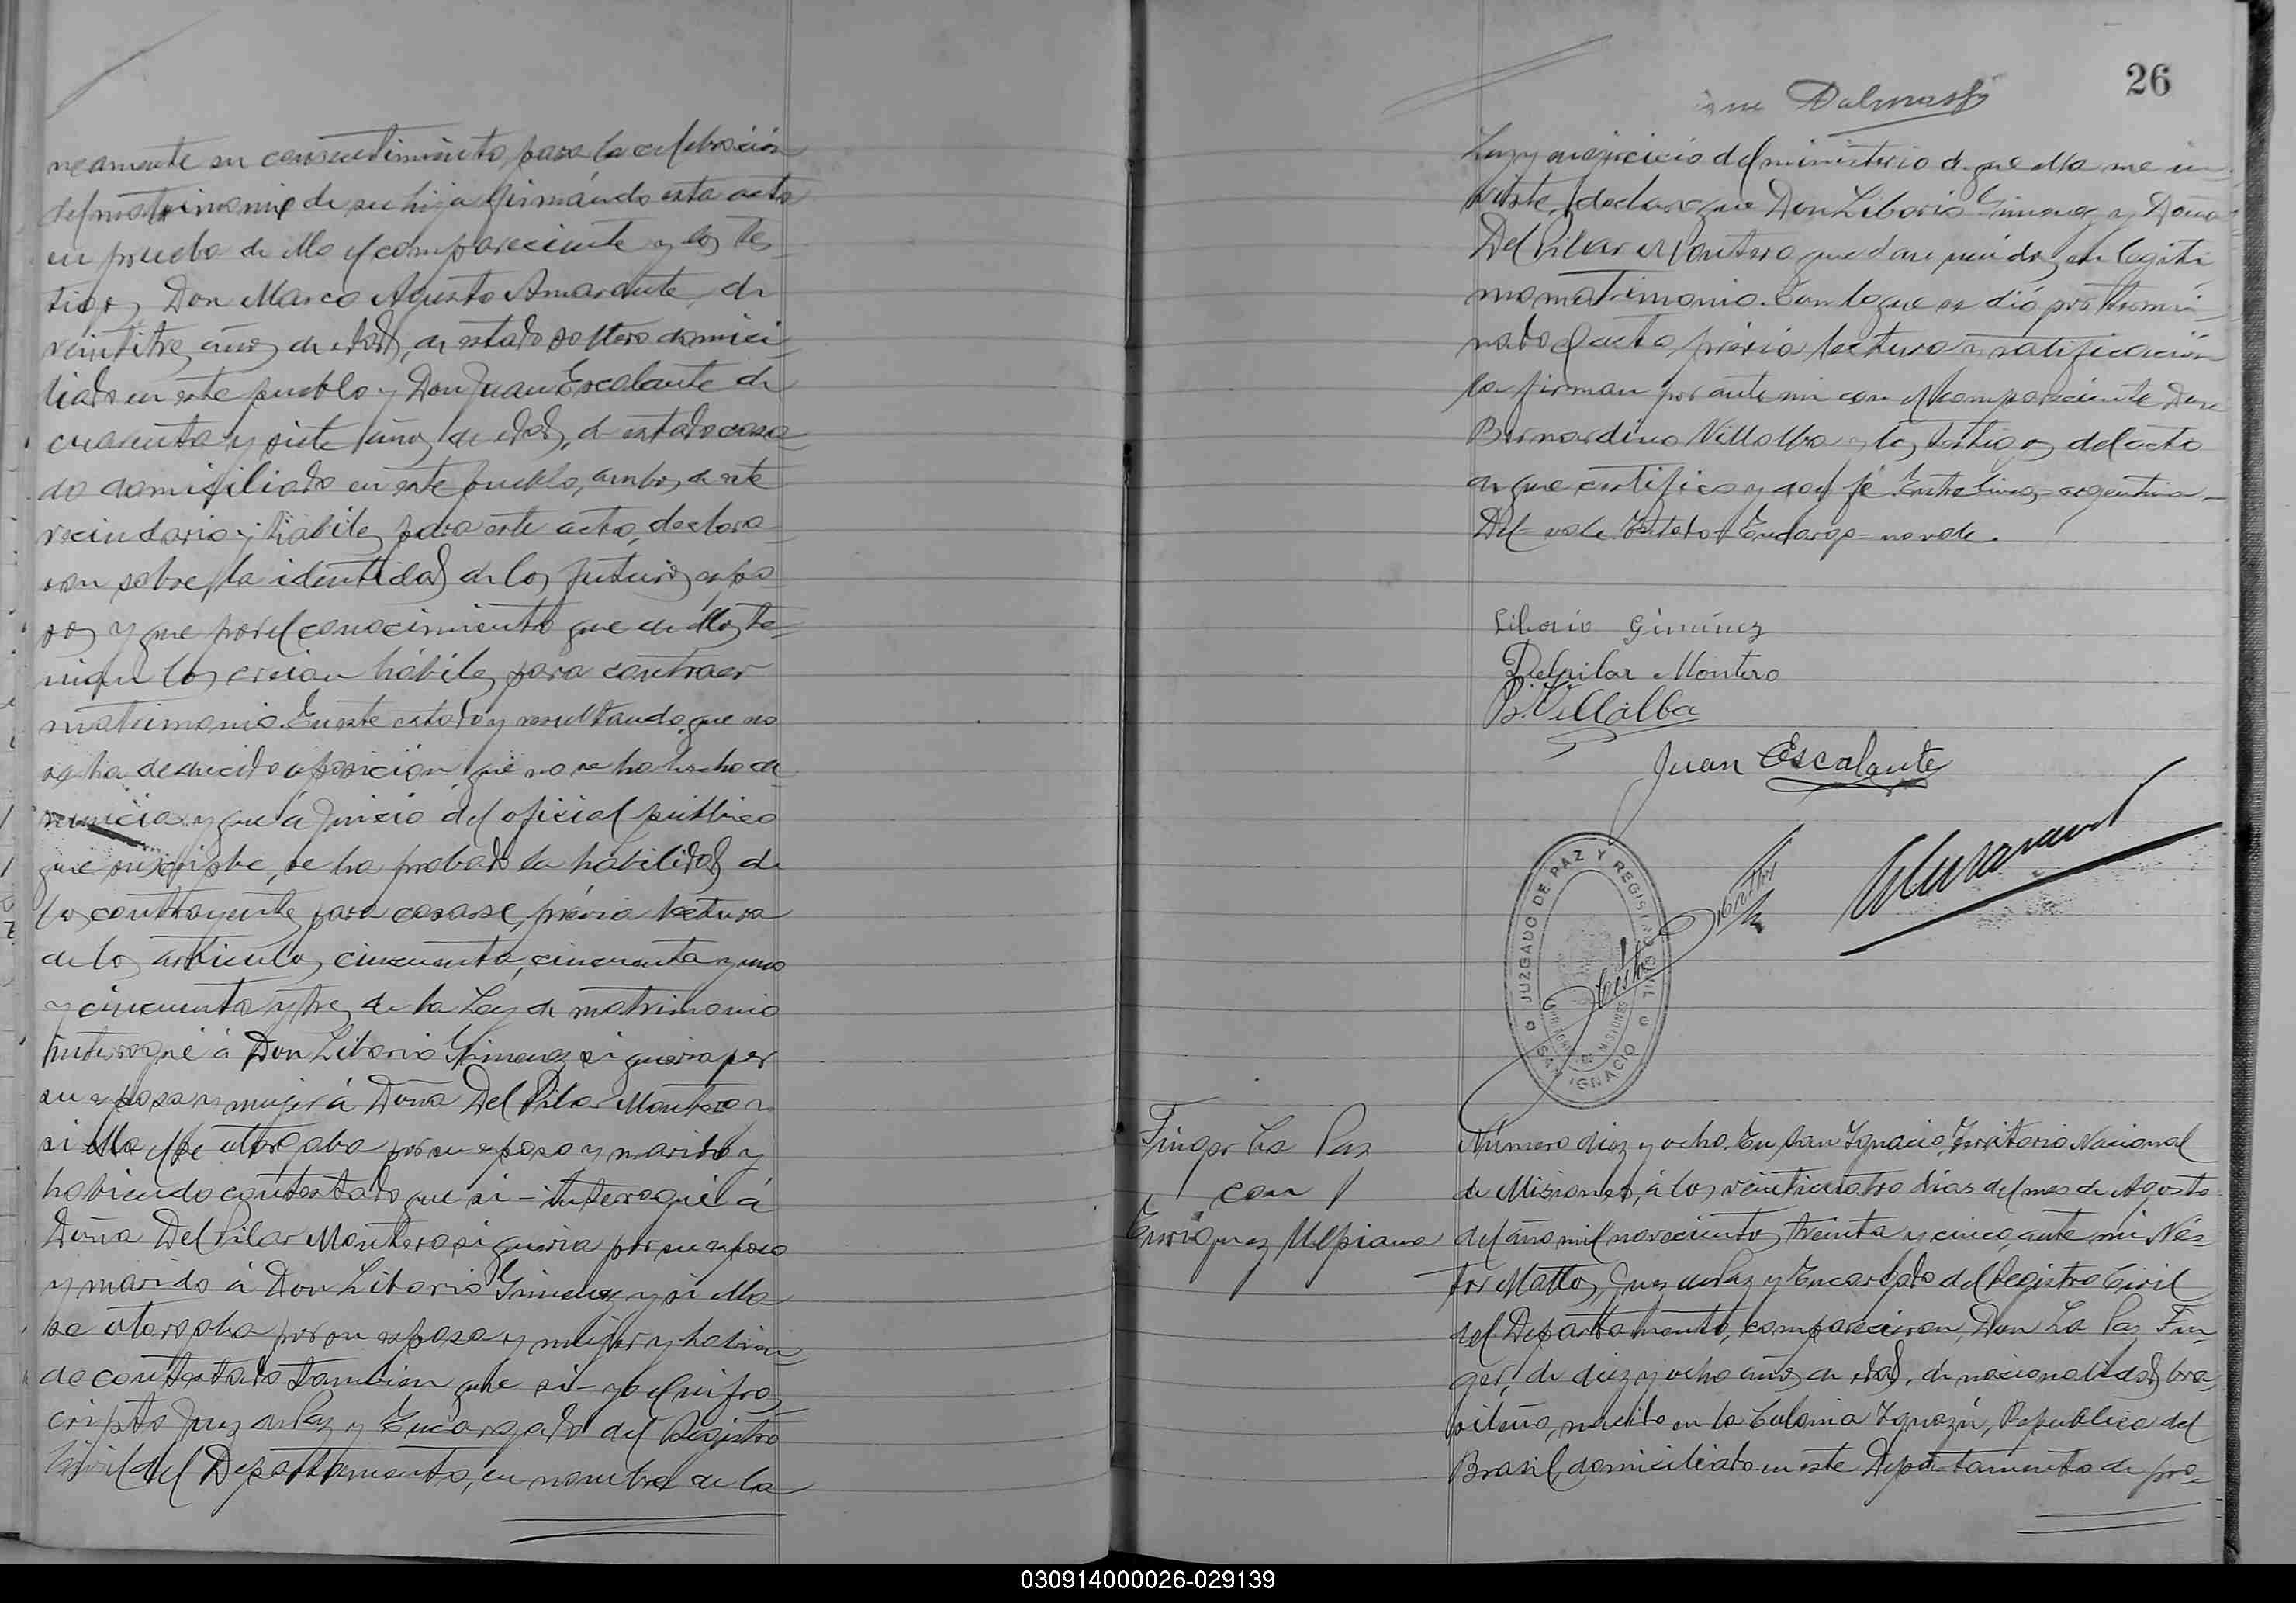 neamente su consentimiento para la celebración
del matrimonio de su hija firmando esta acta
en prueba de ello el compareciente y los tes-
tigos Don Marco Agusto Amarante, de
veintitres años de edad, de estado soltero domici-
liado en este pueblo y Don Juan Escalante de
cuarenta y siete años de edad, de estado casa-
do domiciliado en este pueblo, ambos de este
vecindario y habiles para este acto, declara-
ron sobre la identidad de los futuros espo
sos y que por el conocimiento que de ellos te-
nian los creian hábiles para contraer
matrimonio. En este estado y resultando que no
se ha deducido oposición, que no se ha hecho de-
nuncia y que á juicio del oficial público
que suscribe, se ha probado la habilidad de
los contrayentes para casarse, prévia lectura
de los articulos cincuenta, cincuenta y uno
y cincuenta y tres de la Ley de matrimonio
interrogué á Don Liborio Gimenez si queria por
su esposa y mujer á Doña Del Pilar Montero y
si ella se otorgaba por su esposo y marido y
habiendo contestado que si - interrogué á
Doña Del Pilar Montero si queria por su esposo
y marido á Don Liborio Gimenez y si ella
se otorgaba por su esposa y mujer y habien-
do contestado tambien que si - yo el infras-
cripto Juez de Paz y Encargado del Registro
Civil del Departamento, en nombre de la
26
Dalmasy
Ley y en ejercicio del ministerio de que ella me in-
viste, declaro que Don Liborio Gimenez y Doña
Del Pilar Montero quedan unidos en legíti-
mo matrimonio. Con lo que se dió por termi-
nado el acto, prévia lectura y ratificación
la firman por ante mi con el compareciente Don
Bernardino Villalba y los testigos del acto
de que certifico y doy fé. Entre lineas = argentina -
Del = vale. Testado = Encargo = no vale.
Liborio Giménez
Delpilar Montero
B. Villalba
Juan Escalante
JUZGADO DE PAZ Y REGISTRO CIVIL
SAN IGNACIO
MISIONES
Finger La Paz
con
Enriquez Ulpiana
Número diez y ocho. En San Ignacio, Territorio Nacional
de Misiones, á los veinticuatro dias del mes de Agosto
del año mil novecientos treinta y cinco, ante mi Nés-
tor Mattos, Juez de Paz y Encargado del Registro Civil
del Departamento, comparecieron, Don La Paz Fin-
ger, de diez y ocho años de edad, de nacionalidad bra-
sileña, nacido en la Colonia Yguazú, Republica del
Brasil, domiciliado en este Departamento de pro-
030914000026-029139